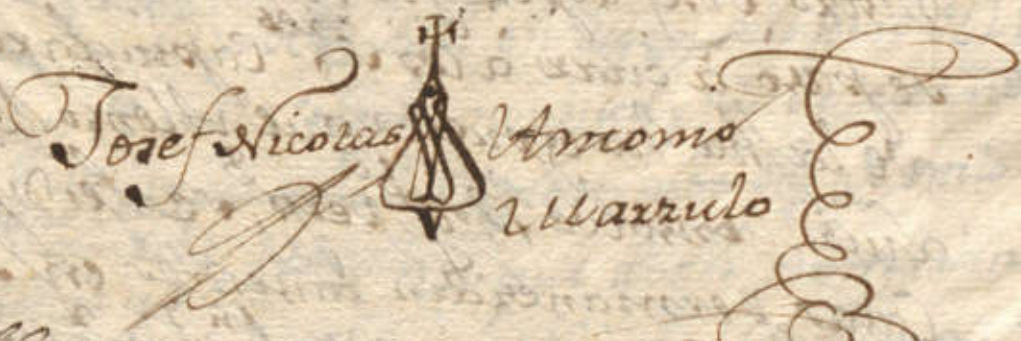 Josef Nicolas Antonio
Marzulo